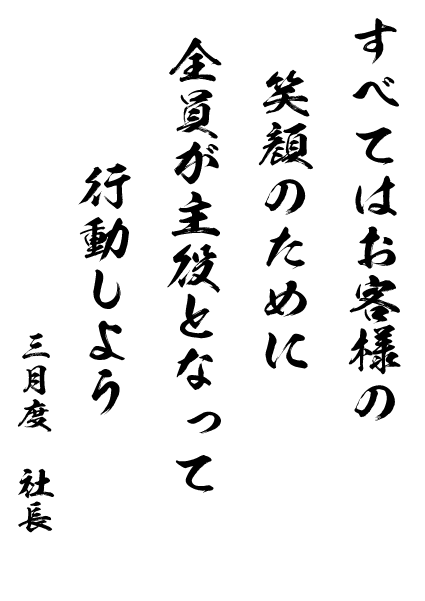 すべてはお客様の
笑顔のために
全員が主役となって
行動しよう
三月度　社長